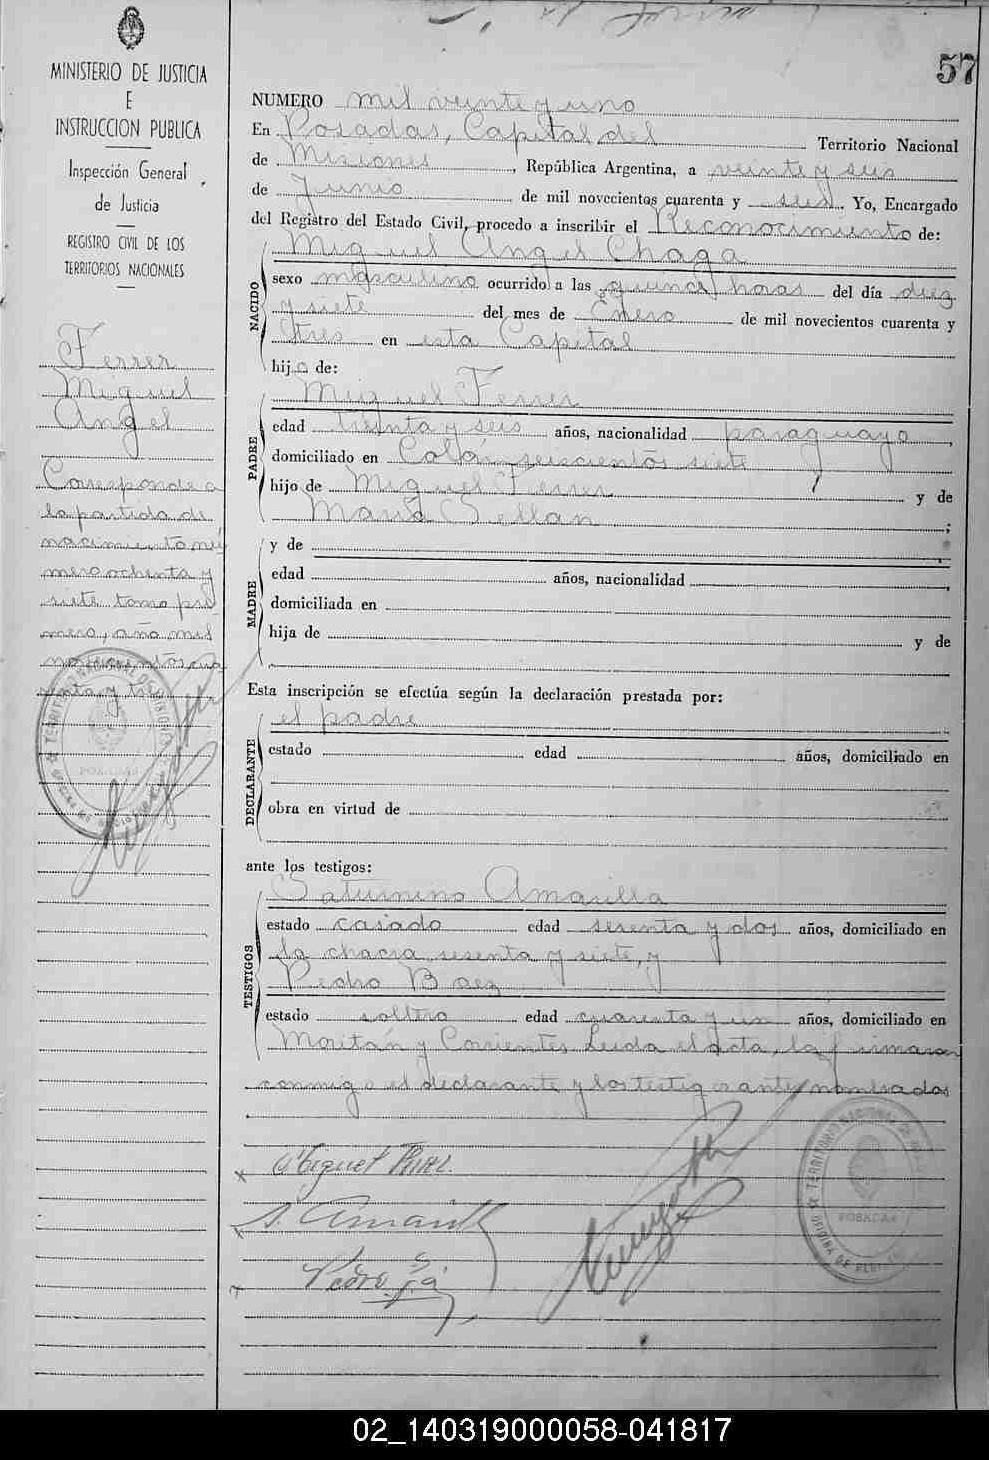 57
MINISTERIO DE JUSTICIA
E
INSTRUCCION PUBLICA
Inspección General
de Justicia
REGISTRO CIVIL DE LOS
TERRITORIOS NACIONALES
Ferrer
Miguel
Angel
Corresponde a
la partida de
nacimiento nu
mero ochenta y
siete tomo pri
mero, año mil
novecientos cua
renta y tres
NUMERO mil veinte y uno
En Posadas, Capital del Territorio Nacional
de Misiones, República Argentina, a veinte y seis
de Junio de mil novecientos cuarenta y seis. Yo, Encargado
del Registro del Estado Civil, procedo a inscribir el Reconocimiento de:
Miguel Angel Chaga
NACIDO
sexo masculino ocurrido a las quince horas del día diez
y siete del mes de Enero de mil novecientos cuarenta y
tres en esta Capital
hijo de:
Miguel Ferrer
PADRE
edad treinta y seis años, nacionalidad paraguayo,
domiciliado en Colón seiscientos siete
hijo de Miguel Ferrer y de
Maria Sellan;
y de
MADRE
edad años, nacionalidad
domiciliada en
hija de y de
Esta inscripción se efectúa según la declaración prestada por:
el padre
DECLARANTE
estado edad años, domiciliado en
obra en virtud de
ante los testigos:
Saturnino Amarilla
TESTIGOS
estado casado edad sesenta y dos años, domiciliado en
la chacra sesenta y siete, y
Pedro Baez
estado soltero edad cuarenta y un años, domiciliado en
y Corrientes. Leida el acta, la firmaron
conmigo el declarante y los testigos antes nombrados
Miguel
S. Amarilla
Pedro
POSADAS
02_140319000058-041817